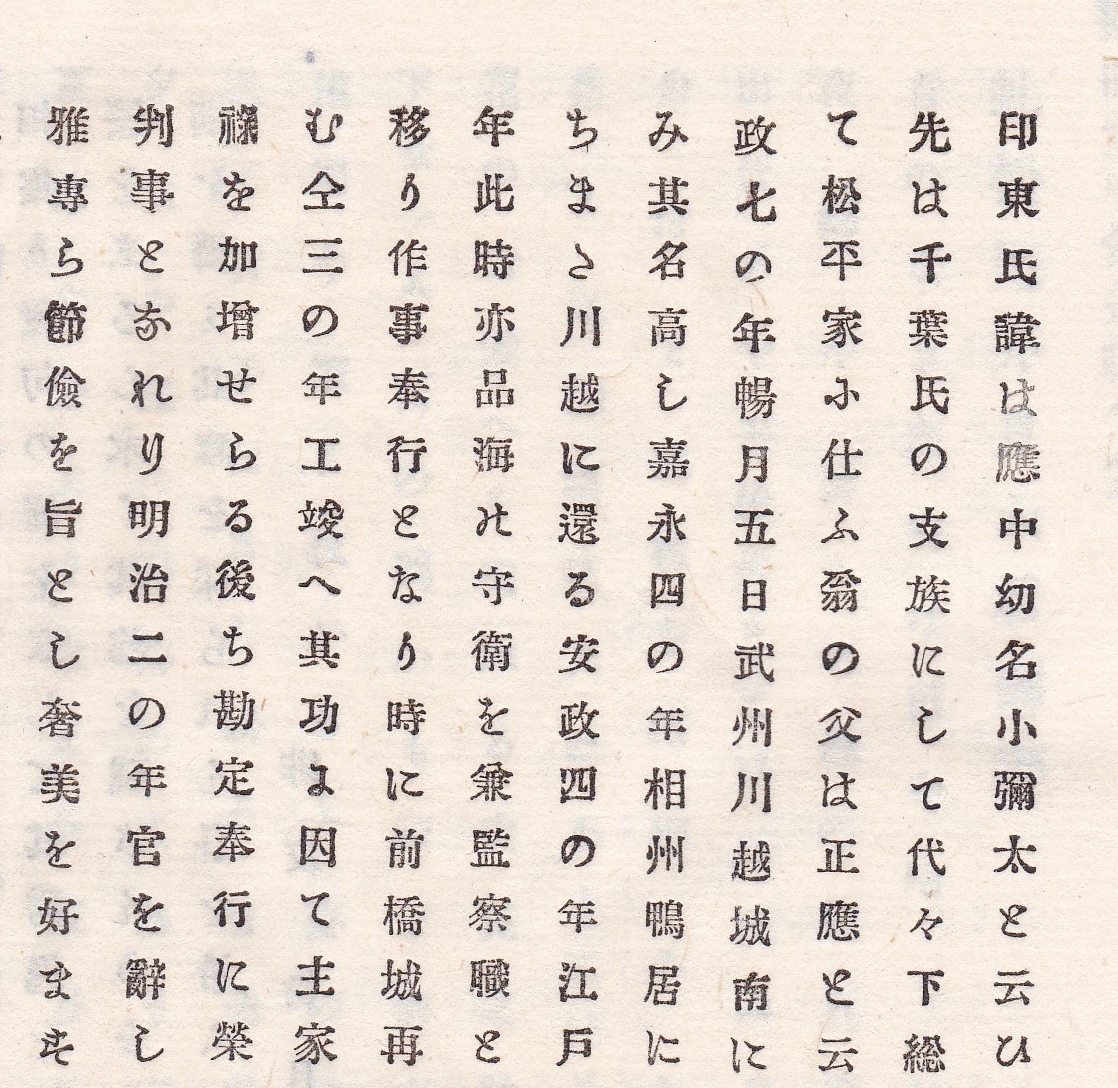 印東氏諱は應中幼名小彌太と云ひ
先は千葉氏の支族にして代々下総
て松平家に仕ふ翁の父は正應と云
政七の年暢月五日武州川越城南に
み其名高し嘉永四の年相州鴨居に
ちまた川越に還る安政四の年江戸
年此時亦品海の守衛を兼監察職と
移り作事奉行となり時に前橋城再
む仝三の年工竣へ其功に因て主家
祿を加增せらる後ち勘定奉行に榮
判事となれり明治二の年官を辭し
雅專ら節儉を旨とし奢美を好ます